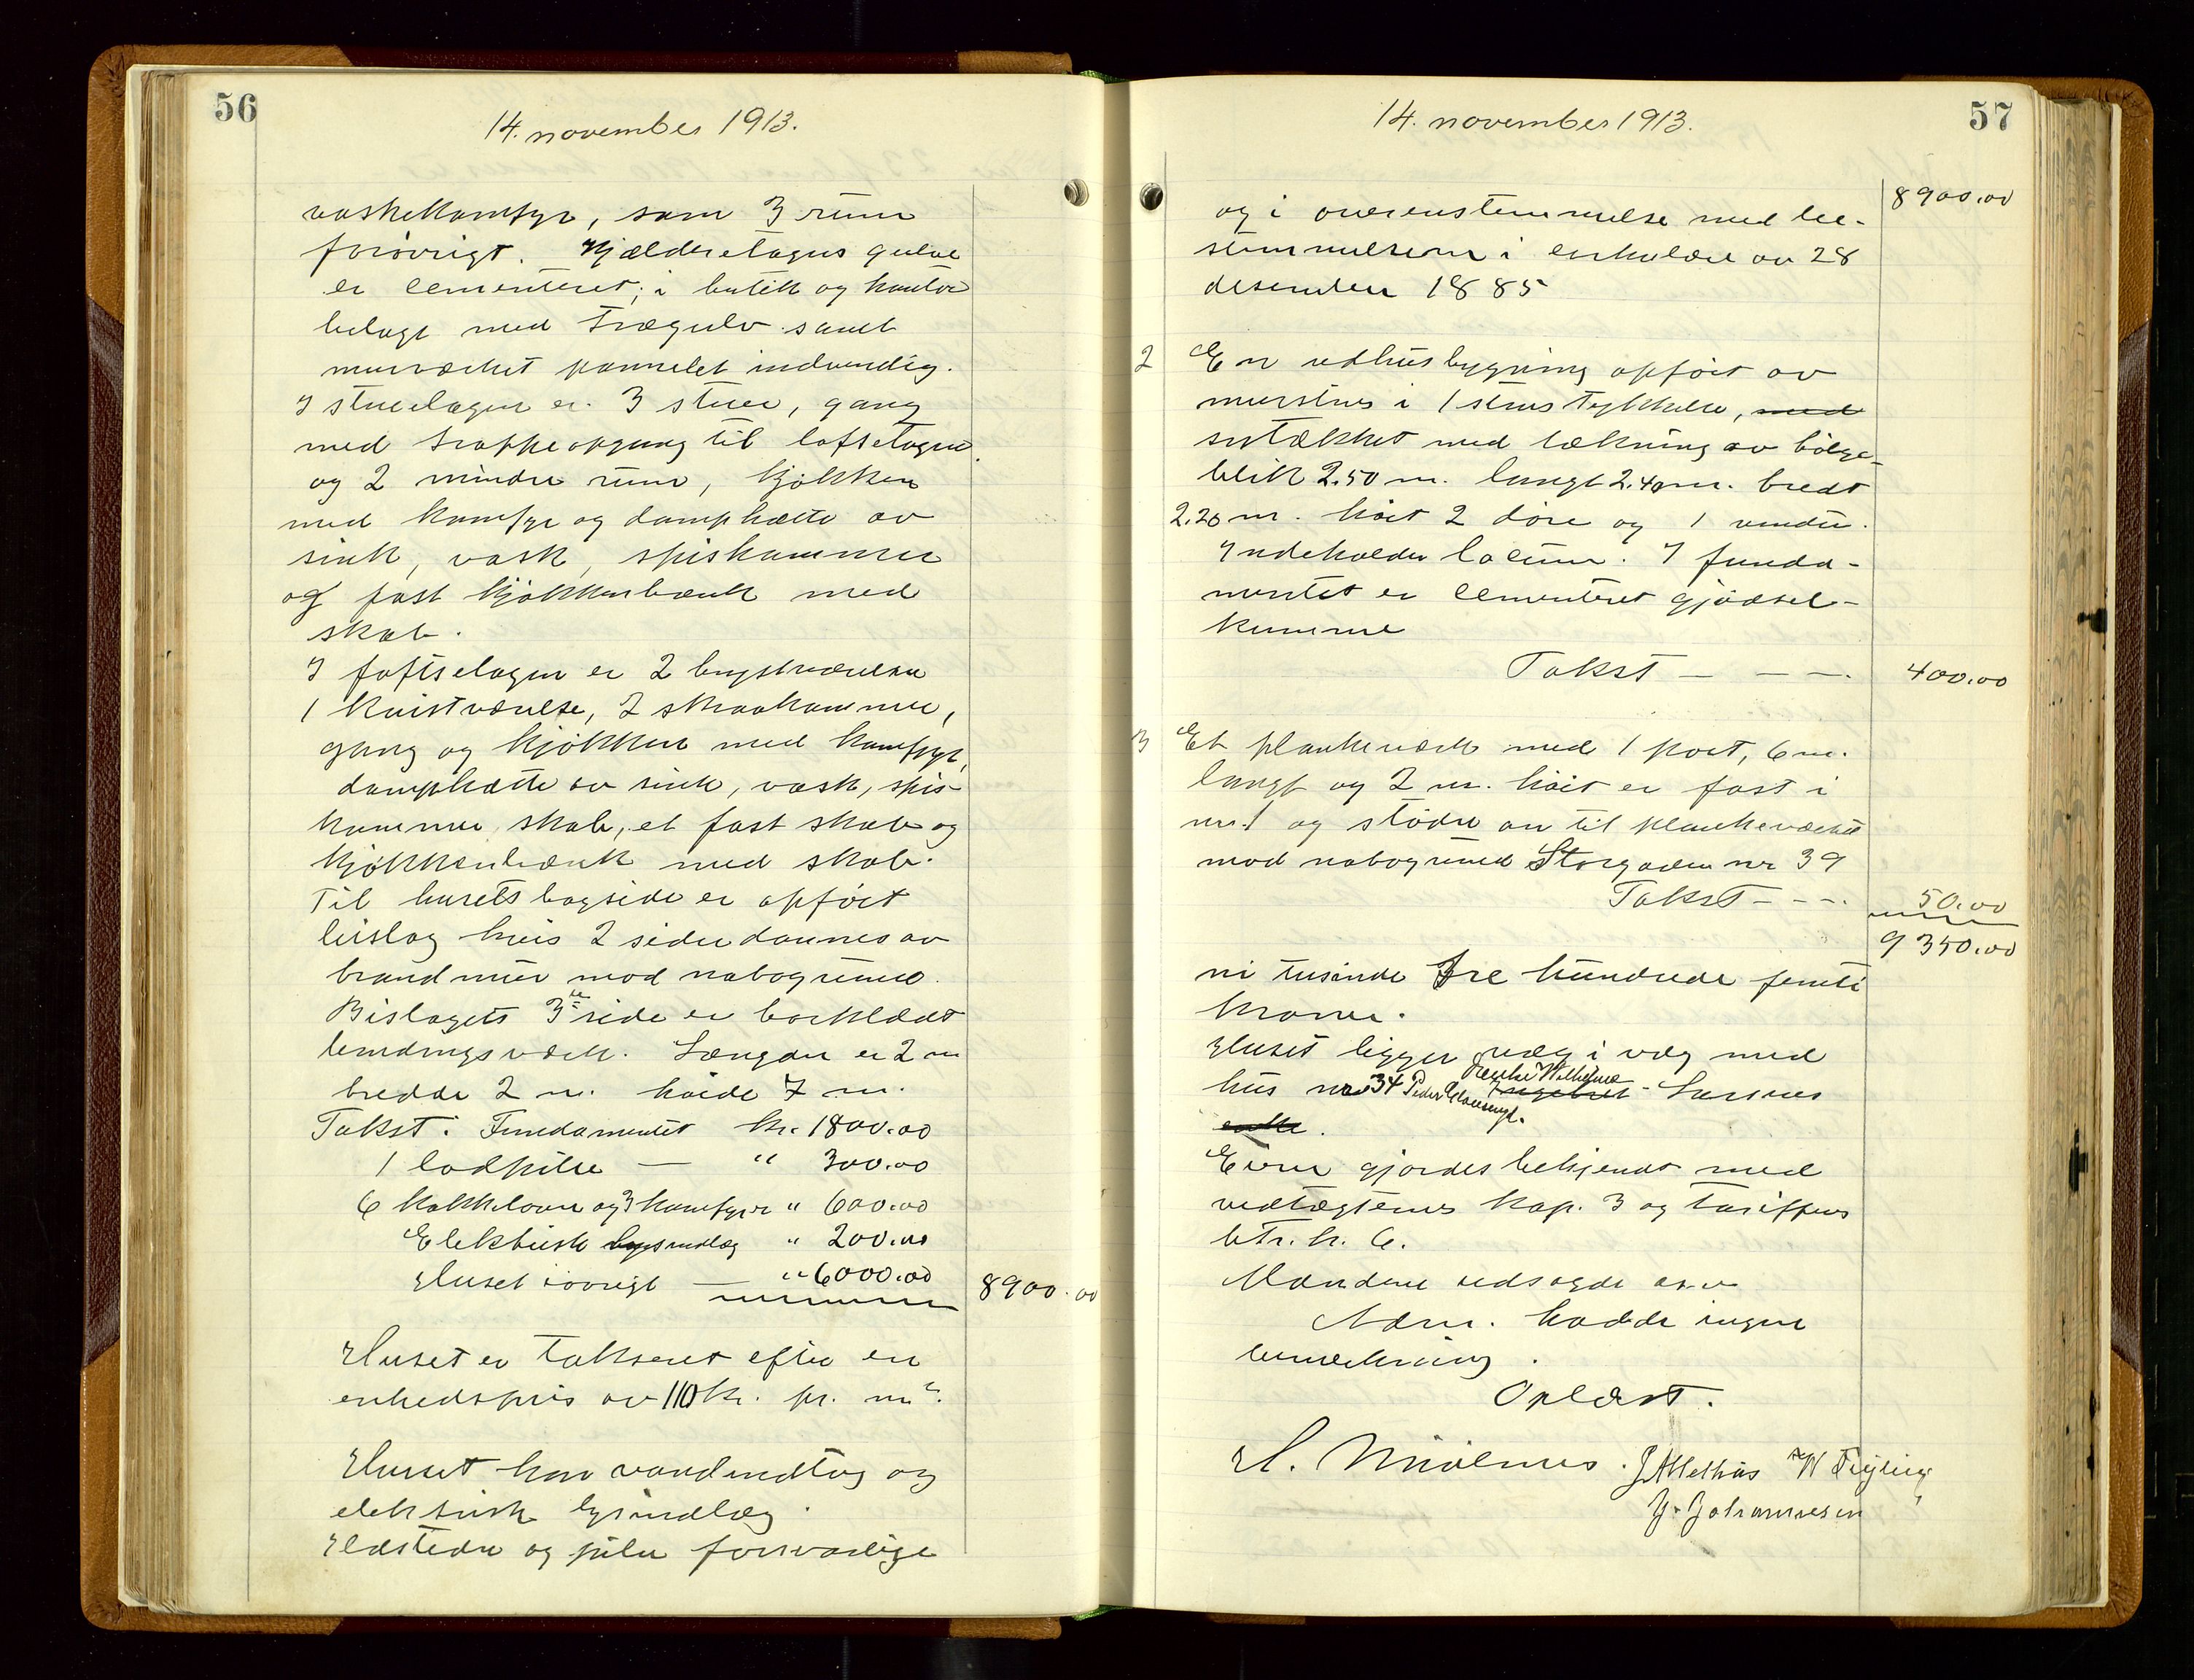 56
14. november 1913.
vaskekomfyr, samt 3 rum
forøvrigt. Kjælderetagens gulve
er cementeret; i butik og kontor
belagt med trægulv samt
murverket pannelet indvendig.
I stueetagen er 3 stuer, gang
med trappeopgang til loftsetagen
og 2 mindre rum, kjøkken
med komfyr og damphætte av
sink, vask, spiskammer
og fast kjøkkenbænk med
skab.
I loftsetagen er 2 kvistværelser
1 kvistværelse, 2 skraakammer,
gang og kjøkken med komfyr,
damphætte av sink, vask, spis-
kammer, skab, et fast skab og
kjøkkenbænk med skab.
Til husets bagside er opført
bislag hvis 2 sider dannes av
brandmur mod nabogrund.
Bislagets 3die side er bordklædt
bindingsverk. Længde er 2 m
bredde 2 m. høide 7 m.
Takst: Fundamentet kr. 1800.00
1 lodpibe — " 300.00
6 kakkelovne og 3 komfyrer " 600.00
Elektrisk lysindlæg " 200.00
Huset iøvrigt — " 6000.00 8900.00
Huset er takseret efter en
enhedspris av 110 kr. pr. m².
Huset har vandindlæg og
elektrisk lysindlæg.
Ildsteder og piber forsvarlige
57
14. november 1913.
8900.00
og i overenstemmelse med be-
stemmelserne i cirkulære av 28
desember 1885
2 En uthusbygning opført av
mursten i 1 stens tykkelse, med
sutækket med tækning av bølge-
blik 2.50 m. langt 2.40 m. bredt
2.20 m. høit 2 døre og 1 vindu.
Indeholder locum. I funda-
mentet er cementeret gjødsel-
kumme
Takst — — —. 400.00
3 Et plankeverk med 1 port, 6 m.
langt og 2 m. høit er fast i
nr. 1 og støder an til plankeverket
mod nabogrund Storgaden nr 39
Takst — — —. 50.00
9350.00
ni tusinde tre hundrede femti
kroner.
Huset ligger væg i væg med
hus nr 34 Peder Clausensgt. Wilhelms Larsens
enke.
Eieren gjordes bekjendt med
vedtægternes kap. 3 og tariffens
litr. h. 6.
Mændene utsagde o.s.v
Adm. hadde ingen
bemerkning.
Oplæst.
J. Johannesen